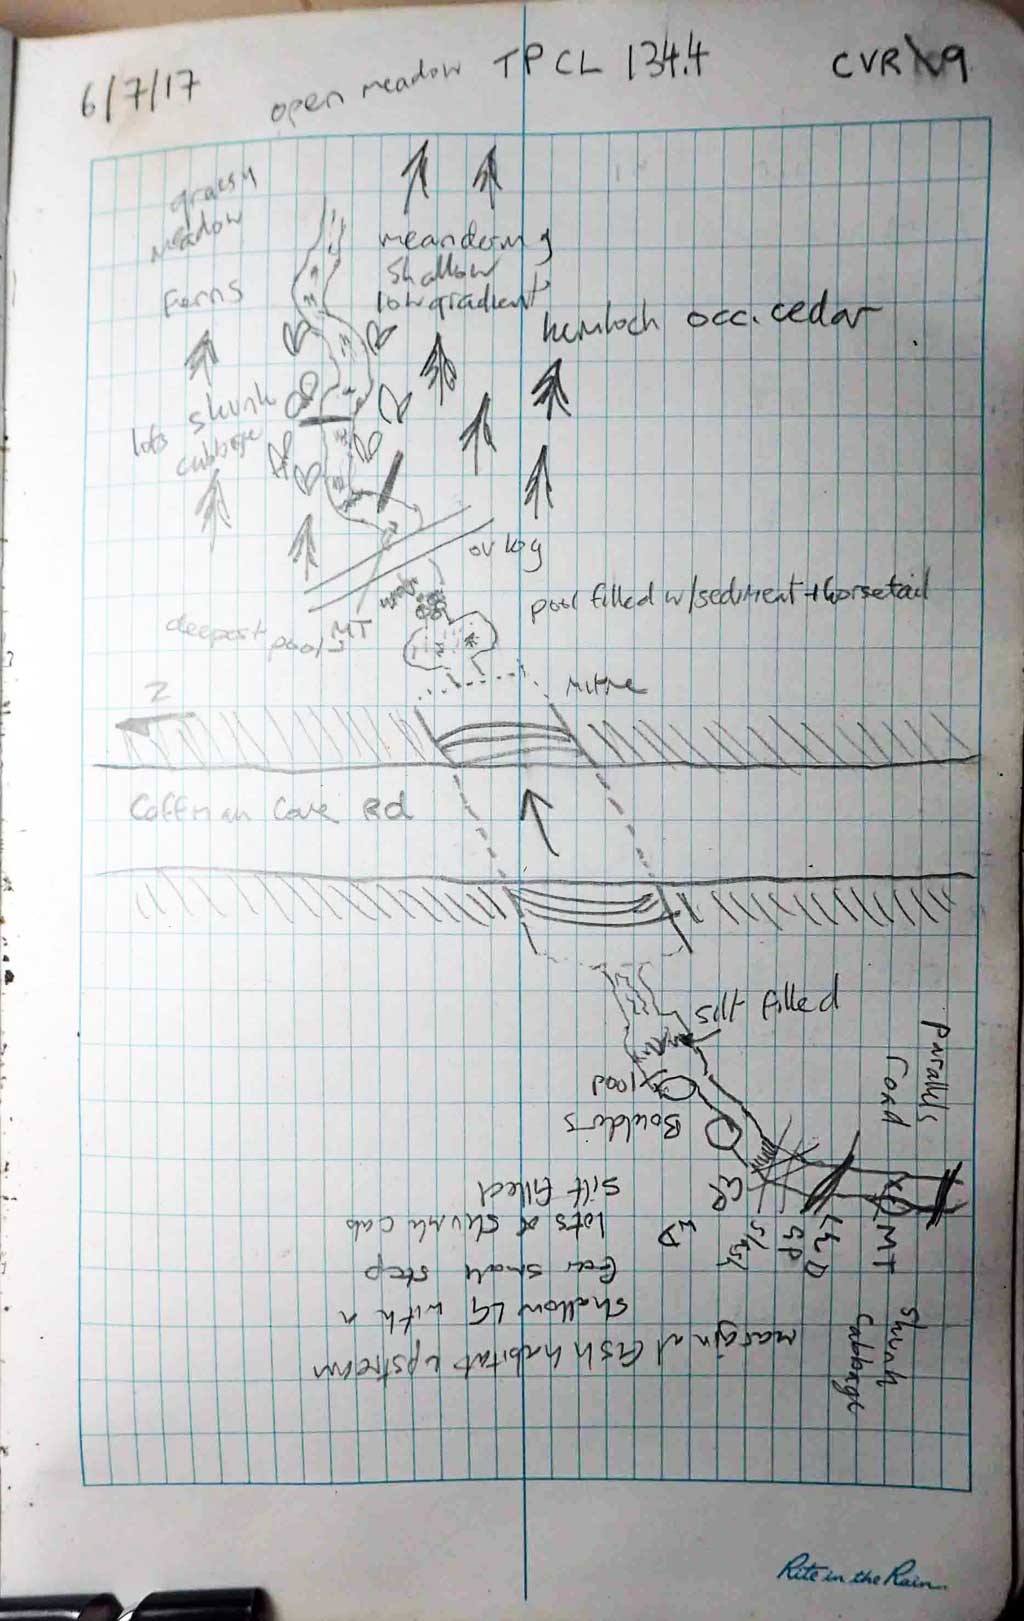 6/7/17
open meadow TPCL 134.4
CVR 9
grassy
meadow
Ferns
meandering
shallow
low gradient
hemlock occ. cedar
lots skunk
cabbage
ov log
pool filled w/sediment + horsetail
deepest
pool
MT
mitre
Z
Coffman Cove Rd
silt filled
Parallels
road
Flood
Boulders
silt filled
lots of skunk cab
few small step
shallow LG with a
marginal fish habitat upstream
MT
skunk
cabbage
Rite in the Rain